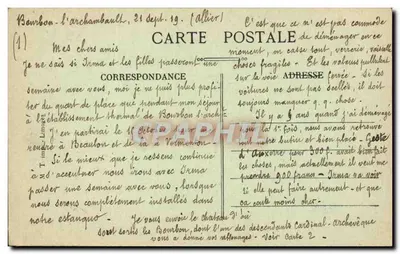 Bourbon-l'archambault, 21 sept. 19. (Allier)
(1)
CARTE POSTALE
CORRESPONDANCE
ADRESSE
Mes chers amis
Je ne sais si Irma et les filles passeront une
semaine avec vous, moi je ne puis plus profi-
ter du quart de place que pendant mon séjour
à l'établissement thermal de Bourbon l'arch
J'en partirai le
rendre à Beaulon et de là à
Si le mieux que je ressens continue
à s'accentuer nous irons avec Irma
passer une semaine avec vous, lorsque
nous serons complètement installés dans
notre estanquo. Je vous envoie le chateau d'où
sont sortis les Bourbon, dont l'un des descendants cardinal-archevêque
vous a donné vos allonages. Voir carte 2.
C'est que ce n'est pas commode
de déménager en ce
moment, on casse tout, verrerie, vaisselle
choses fragiles. Et les voleurs pullulent
sur la voie ferrée. Si les
voitures ne sont pas scellées, il doit
toujours manquer q.q. chose.
Il y a 6 ans quand j'ai déménagé
la st fois, nous avons retrouvé
notre butin et bien placé.
d'Auxerre pour 300 f. avait bien fait
les choses, mais actuellement il veut me
prendre 900 francs. Irma va voir
si elle peut faire autrement et que
ça coute moins cher.